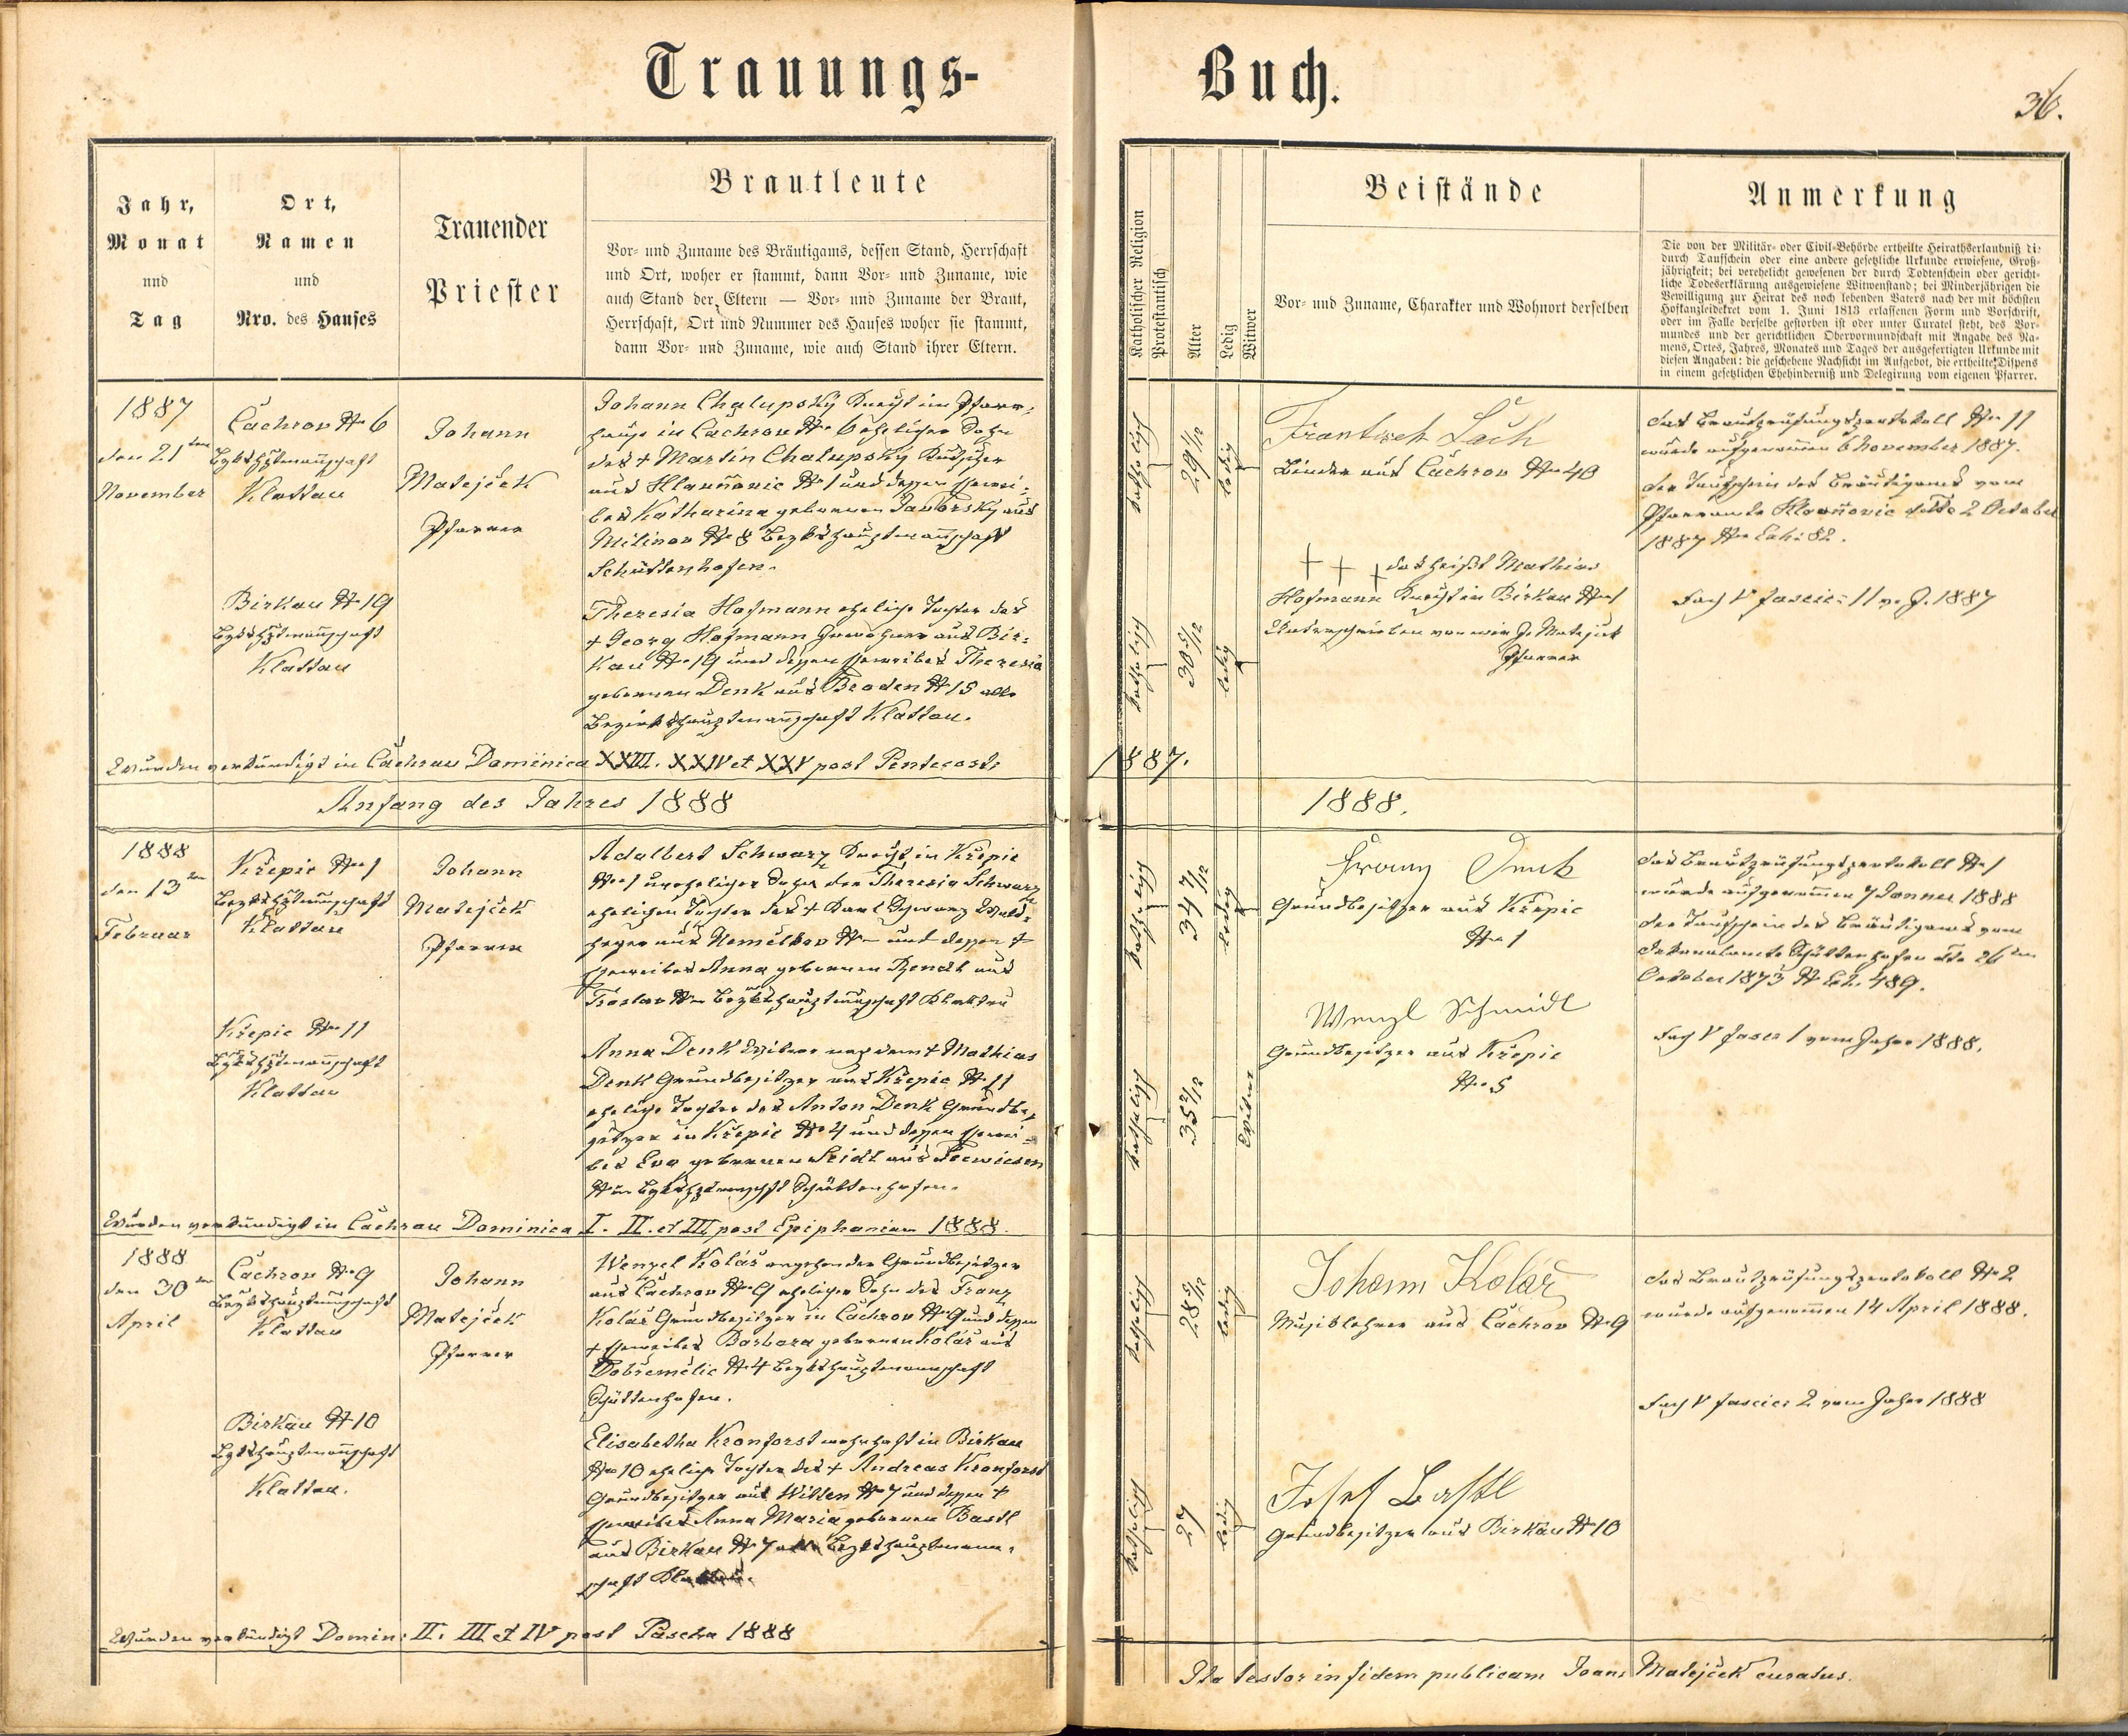 Trauungs-
Buch.
36.
Jahr,
Monat
und
Tag
Ort,
Namen
und
Nro. des Hauses
Trauender
Priester
Brautleute
Vor- und Zuname des Bräutigams, dessen Stand, Herrschaft
und Ort, woher er stammt, dann Vor- und Zuname, wie
auch Stand der Eltern — Vor- und Zuname der Braut,
Herrschaft, Ort und Nummer des Hauses woher sie stammt,
dann Vor- und Zuname, wie auch Stand ihrer Eltern.
Katholischer Religion
Protestantisch
Alter
Ledig
Witwer
Beistände
Vor- und Zuname, Charakter und Wohnort derselben
Anmerkung
Die von der Militär- oder Civil-Behörde ertheilte Heirathserlaubniß di:
durch Taufschein oder eine andere gesetzliche Urkunde erwiesene, Groß-
jährigkeit; bei verehelicht gewesenen der durch Todtenschein oder gericht-
liche Todeserklärung ausgewiesene Witwenstand; bei Minderjährigen die
Bewilligung zur Heirat des noch lebenden Vaters nach der mit höchsten
Hofkanzleidekret vom 1. Juni 1813 erlassenen Form und Vorschrift,
oder im Falle derselbe gestorben ist oder unter Curatel steht, des Vor-
mundes und der gerichtlichen Obervormundschaft mit Angabe des Na-
mens, Ortes, Jahres, Monates und Tages der ausgefertigten Urkunde mit
diesen Angaben: die geschehene Nachsicht im Aufgebot, die ertheilte Dispens
in einem gesetzlichen Ehehinderniß und Delegirung vom eigenen Pfarrer.
1887
den 21ten
November
Čachrov № 6
Bzkshptmannschaft
Klattau
Johann
Matejček
Pfarrer
Johann Chalupský Knecht im Pfarr-
hause in Čachrov № 6 ehelicher Sohn
des + Martin Chalupský Kutscher
aus Hlavňovic № 1 und dessen Ehewei-
bes Katharina geborenen Javorský aus
Milinov № 8 Bezkshauptmannschaft
Schüttenhofen.
katholisch
29 1/12
ledig
František Lach
Binder aus Čachrov № 40
das Brautprüfungsprotokoll № 11
wurde aufgenommen 6 November 1887.
der Taufschein des Bräutigams vom
Pfarramte Hlavňovic ddto 2 October
1887 № Exh: 82.
Birkau № 19
Bzkshptmannschaft
Klattau
Theresia Hofmann eheliche Tochter des
+ Georg Hofmann Inwohner aus Bir-
kau № 19 und dessen Eheweibes Theresia
geborenen Denk aus Braden № 15 alle
Bezirkshauptmannschaft Klattau.
katholisch
30 5/12
ledig
+ + + das heißt Mathias
Hofmann Knecht in Birkau № 1
Unterschrieben von mir J. Matejček
Pfarrer
Fach V fascic: 11 v. J. 1887
Wurden verkündigt in Čachrau Dominica XXIII. XXIV et XXV post Pentecost:
1887.
Anfang des Jahres 1888
1888.
1888
den 13ten
Februar
Křepic № 1
Bezkshptmannschaft
Klattau
Johann
Matejček
Pfarrer
Adalbert Schwarz Knecht in Křepic
№ 1 unehelicher Sohn der Theresia Schwarz
ehelichen Tochter des + Karl Schwarz Wald-
heger aus Nemělkov № – und dessen +
Eheweibes Anna geborenen aus
№ – Bezkshauptmannschaft Klattau
katholisch
34 7/12
ledig
Franz Denk
Grundbesitzer aus Křepic
№ 1
das Brautprüfungsprotokoll № 1
wurde aufgenommen 7 Jänner 1888
der Taufschein des Bräutigams vom
Dekanalamte Schüttenhofen ddo 26ten
October 1873 № Exh. 489.
Křepic № 11
Bzkshptmannschaft
Klattau
Anna Denk Witwe nach dem + Mathias
Denk Grundbesitzer aus Křepic № 11
eheliche Tochter des Anton Denk Grundbe-
sitzer in Křepic № 4 und dessen Ehewei-
bes Eva geborenen Seidl aus Seewiesen
№ Bzkshptmnschft Schüttenhofen.
katholisch
35 2/12
Witwe
Wenzl Schmidl
Grundbesitzer aus Křepic
№ 5
Fach V fasci 1 vom Jahre 1888.
Wurden verkündigt in Čachrau Dominica I. II. et III post Epiphaniam 1888.
1888
den 30ten
April
Čachrov № 9
Bezkshauptmannschaft
Klattau
Johann
Matejček
Pfarrer
Wenzel Kolář angehender Grundbesitzer
aus Čachrov № 9 ehelicher Sohn des Franz
Kolář Grundbesitzer in Čachrov № 9 und dessen
+ Eheweibes Barbara geborenen Kolář aus
Dobřemělic № 4 Bezkshauptmannschaft
Schüttenhofen.
katholisch
28 5/12
ledig
Johann Kolář
Musiklehrer aus Čachrov № 9
das Brautprüfungsprotokoll № 2
wurde aufgenommen 14 April 1888.
Birkau № 10
Bzkshauptmannschaft
Klattau.
Elisabetha Kronforst wohnhaft in Birkau
№ 10 eheliche Tochter des + Andreas Kronforst
Grundbesitzer aus Wilten № 7 und dessen +
Eheweibes Anna Maria geborenen Bastl
aus Birkau № 7 alle Bezkshauptmann-
schaft Klattau.
katholisch
27
ledig
Josef Bastl
Grundbesitzer aus Birkau № 10
Fach V fascic: 2 vom Jahre 1888
Wurden verkündigt Domin: II. III et IV post Pascha 1888
Ita testor in fidem publicam Joans Matejček curatus.